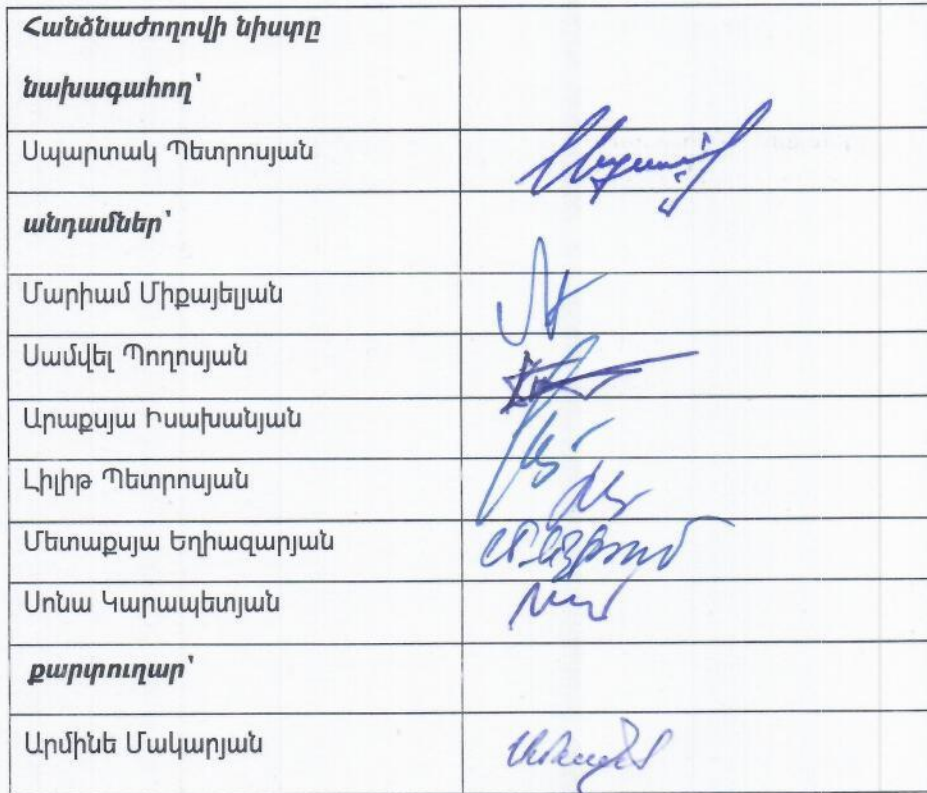 Հանձնաժողովի նիստը
նախագահող՝
Սպարտակ Պետրոսյան
անդամներ՝
Մարիամ Միքայելյան
Սամվել Պողոսյան
Արաքսյա Իսախանյան
Լիլիթ Պետրոսյան
Մետաքսյա Եղիազարյան
Սոնա Կարապետյան
քարտուղար՝
Արմինե Մակարյան